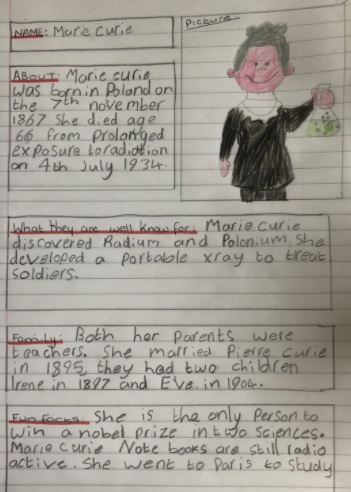 NAME: Marie Curie
Picture
ABOUT: Marie curie
was born in Poland on
the 7th november
1867 She died age
66 from prolonged
exposure to radiation
on 4th July 1934.
What they are well know for: Marie Curie
discovered Radium and Polonium. She
developed a portable xray to treat
soldiers.
Family: Both her parents were
teachers. She married Pierre Curie
in 1895, they had two children
Irene in 1897 and Eve in 1904.
Fun Facts: She is the only person to
win a nobel prize in two sciences.
Marie Curie Note books are still radio
active. She went to Paris to study